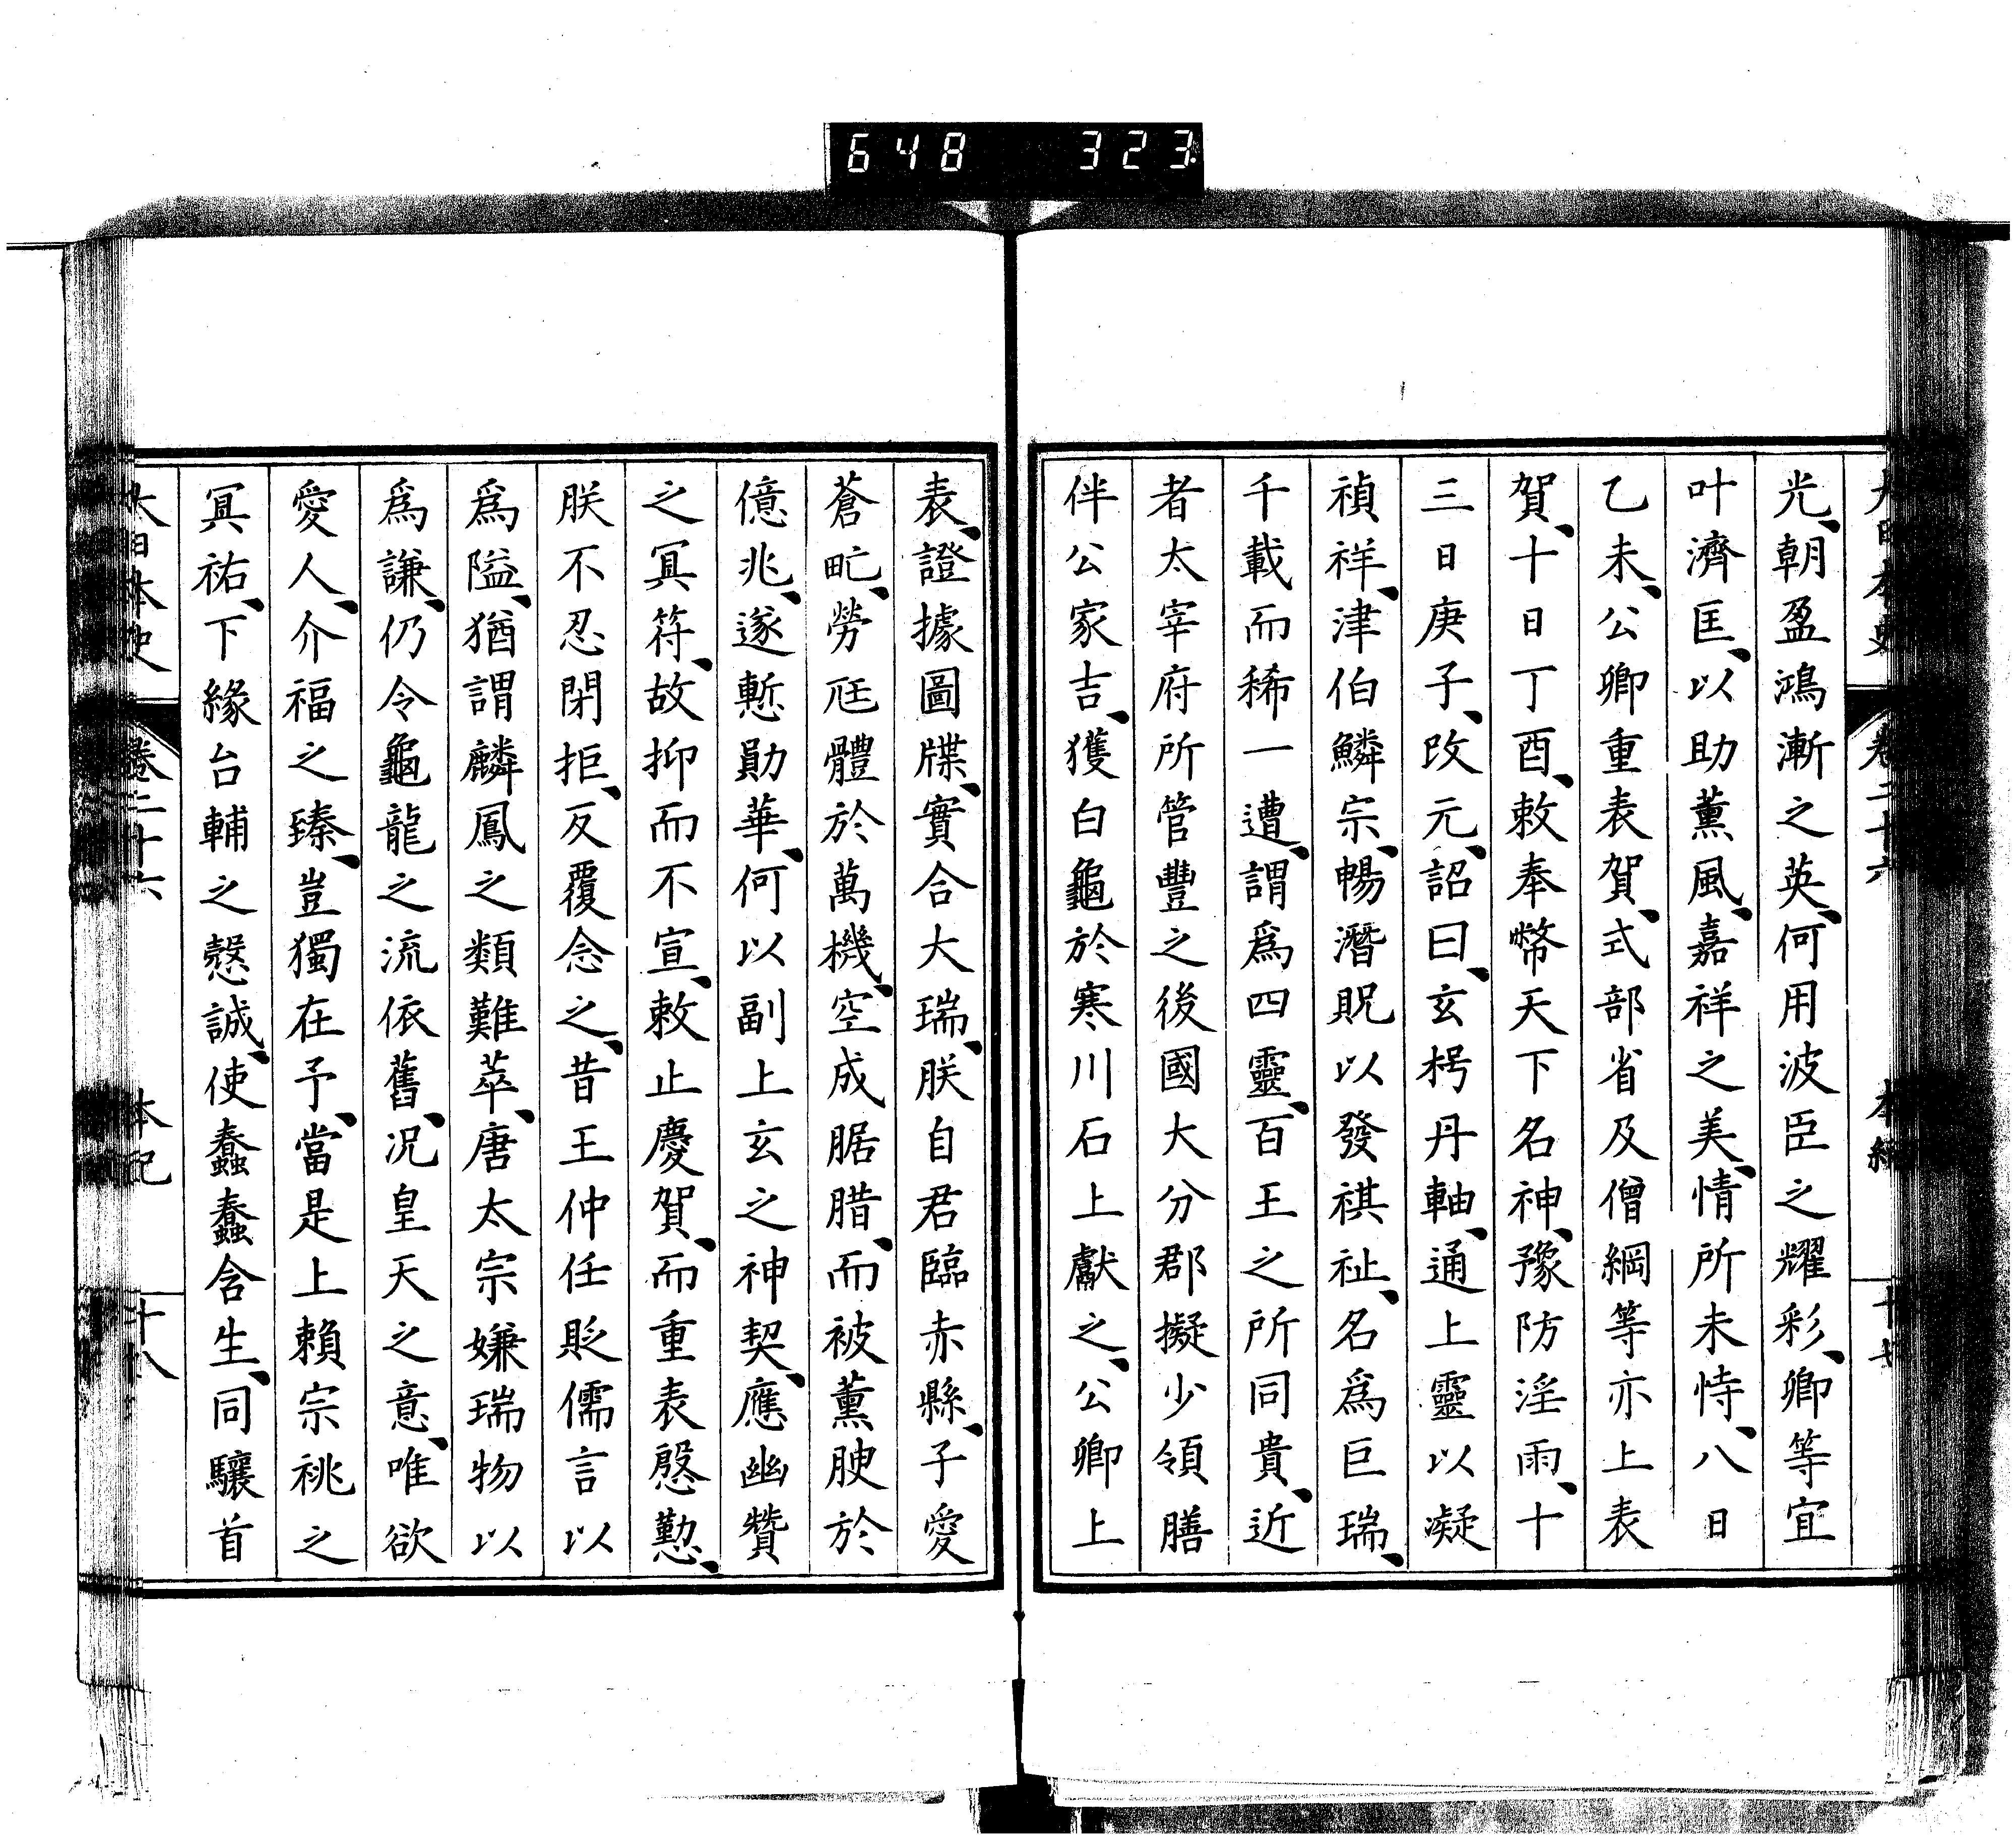 648 323
大日本史 卷二十六 本紀 十七
光、朝盈鴻漸之英、何用波臣之耀彩、卿等宜
叶濟匡、以助薰風、嘉祥之美、情所未恃、八日
乙未、公卿重表賀、式部省及僧綱等亦上表
賀、十日丁酉、敕奉幣天下名神、豫防淫雨、十
三日庚子、改元、詔曰、玄枵丹軸、通上靈以凝
禎祥、津伯鱗宗、暢潛貺以發祺祉、名爲巨瑞、
千載而稀一遭、謂爲四靈、百王之所同貴、近
者太宰府所管豐之後國大分郡擬少領膳
伴公家吉、獲白龜於寒川石上獻之、公卿上
表、證據圖牒、實合大瑞、朕自君臨赤縣、子愛
蒼甿、勞尫體於萬機、空成腒腊、而被薰腴於
億兆、遂慙勛華、何以副上玄之神契、應幽贊
之冥符、故抑而不宣、敕止慶賀、而重表慇懃、
朕不忍閉拒、反覆念之、昔王仲任貶儒言以
爲隘、猶謂麟鳳之類難萃、唐太宗嫌瑞物以
爲謙、仍令龜龍之流依舊、况皇天之意、唯欲
愛人、介福之臻、豈獨在予、當是上賴宗祧之
冥祐、下緣台輔之慤誠、使蠢蠢含生、同驤首
大日本史 卷二十六 本紀 十八